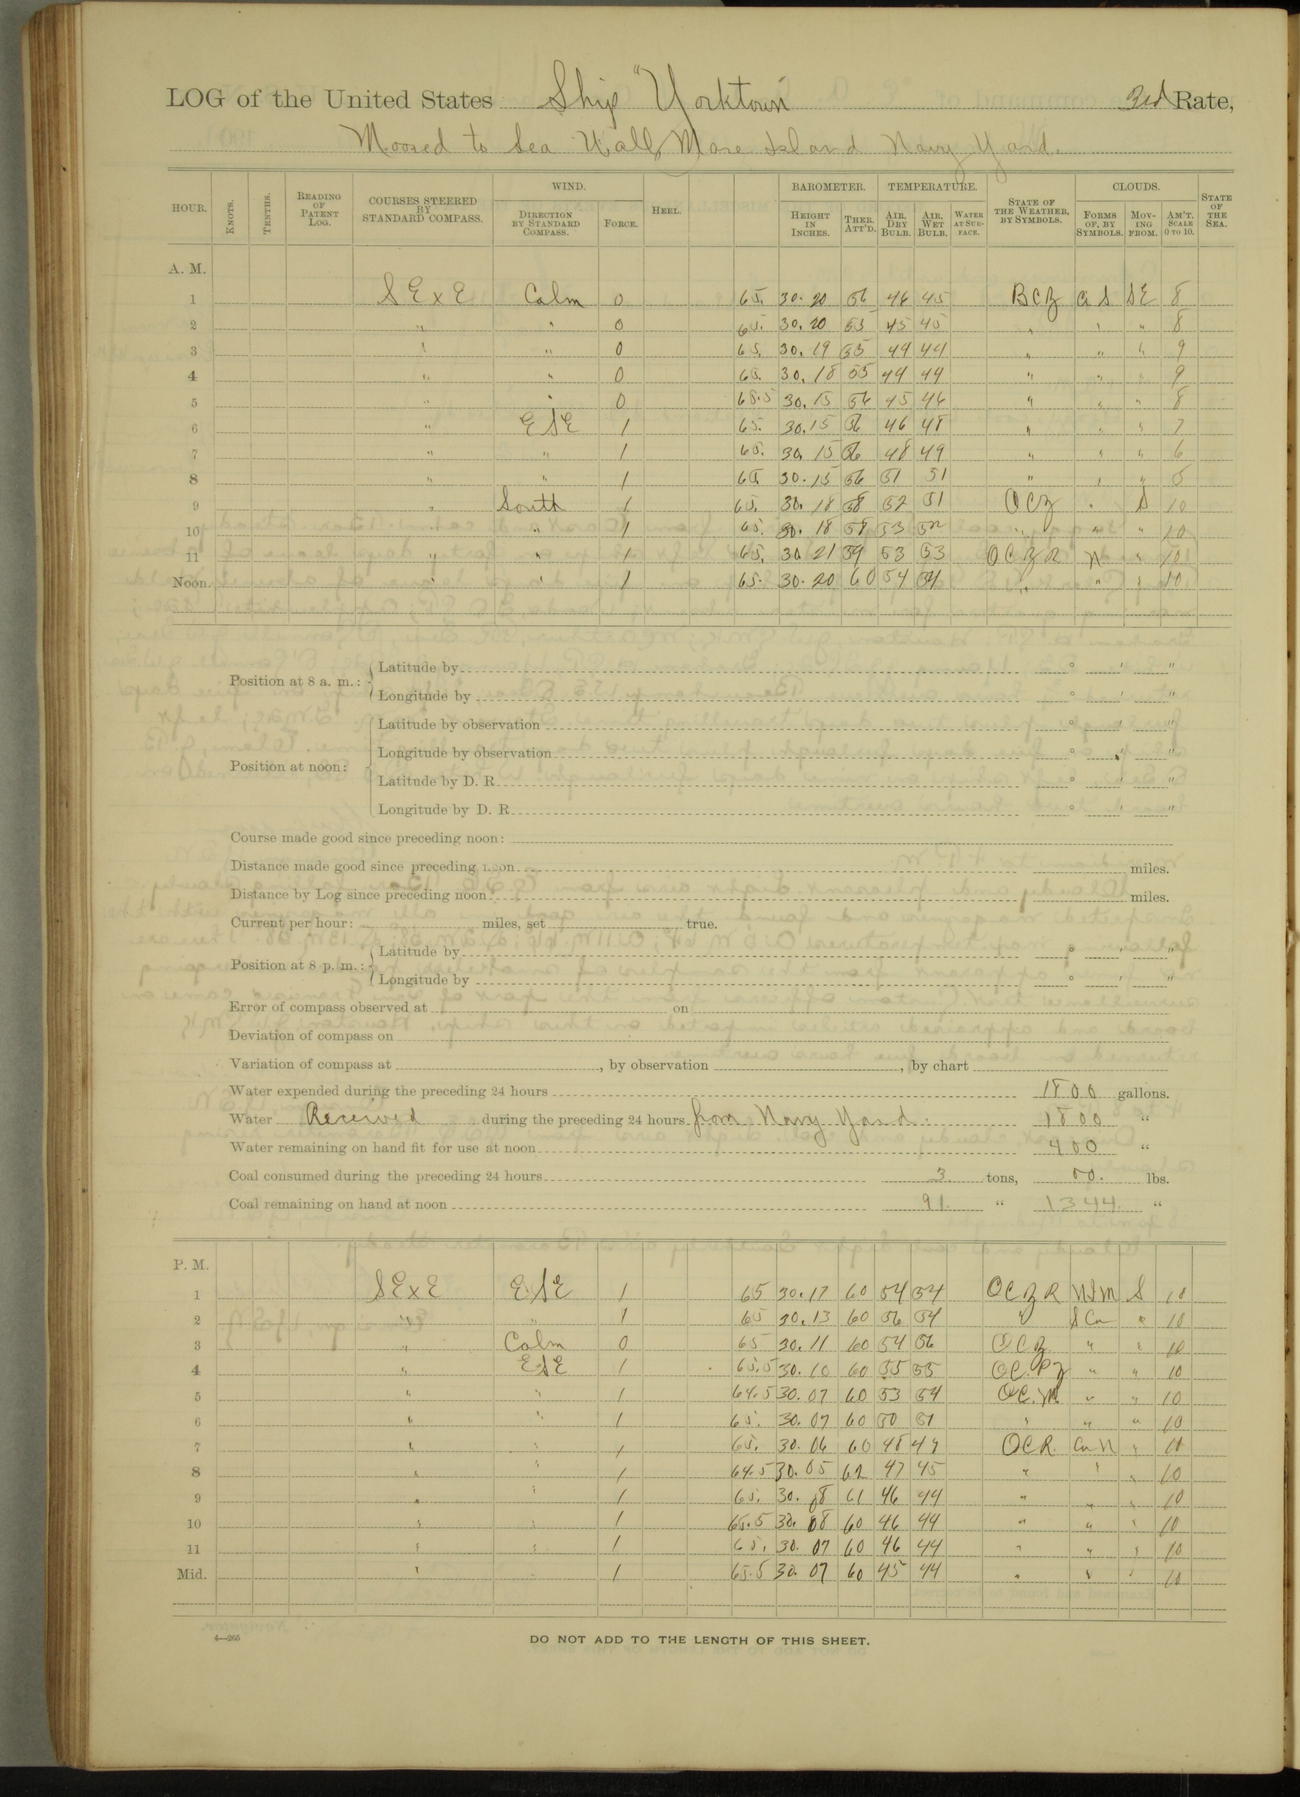 LOG of the United States Ship "Yorktown" 3rd Rate,
Moored to Sea Wall, Mare Island Navy Yard.
HOUR. KNOTS. TENTHS. READING OF PATENT LOG. COURSES STEERED BY STANDARD COMPASS. WIND. DIRECTION BY STANDARD COMPASS. FORCE. HEEL. BAROMETER. HEIGHT IN INCHES. THER. ATT'D. TEMPERATURE. AIR, DRY BULB. AIR, WET BULB. WATER AT SURFACE. STATE OF THE WEATHER, BY SYMBOLS. CLOUDS. FORMS OF, BY SYMBOLS. MOVING FROM. AM'T. SCALE 0 TO 10. STATE OF THE SEA.
A. M.
1 SExE Calm 0 65. 30.20 56 46 45 BCZ SE 8
2 " " 0 65. 30.20 55 45 45 " " " 8
3 " " 0 65. 30.19 55 44 44 " " " 9
4 " " 0 65. 30.18 55 44 44 " " " 9
5 " " 0 65.5 30.15 56 45 46 " " " 8
6 " ESE 1 65. 30.15 56 46 48 " " " 7
7 " " 1 65. 30.15 56 48 49 " " " 6
8 " " 1 65 30.15 56 51 51 " " " 5
9 " South 1 65. 30.18 58 52 51 OCZ " S 10
10 " " 1 65. 30.18 59 53 52 " " " 10
11 " " 1 65. 30.21 59 53 53 OCZR N " 10
Noon. " " 1 65. 30.20 60 54 54 " " " 10
Position at 8 a. m.: Latitude by ° ' "
Longitude by ° ' "
Position at noon: Latitude by observation ° ' "
Longitude by observation ° ' "
Latitude by D. R. ° ' "
Longitude by D. R. ° ' "
Course made good since preceding noon:
Distance made good since preceding noon miles.
Distance by Log since preceding noon: miles.
Current per hour: miles, set true.
Position at 8 p. m.: Latitude by ° ' "
Longitude by ° ' "
Error of compass observed at on
Deviation of compass on
Variation of compass at , by observation , by chart
Water expended during the preceding 24 hours 1800 gallons.
Water Received during the preceding 24 hours from Navy Yard. 1800 "
Water remaining on hand fit for use at noon 400 "
Coal consumed during the preceding 24 hours 3 tons, 00. lbs.
Coal remaining on hand at noon 91. " 1344. "
P. M.
1 SExE ESE 1 65 30.17 60 54 54 OCZR S 10
2 " " 1 65 30.13 60 56 54 " S Cu " 10
3 " Calm 0 65 30.11 60 54 56 OCZ " " 10
4 " ESE 1 65.5 30.10 60 55 55 " " 10
5 " " 1 64.5 30.07 60 53 54 OC.M " " 10
6 " " 1 65. 30.07 60 50 51 " " " 10
7 " " 1 65. 30.06 60 48 49 OCR Cu N " 10
8 " " 1 64.5 30.05 62 47 45 " " " 10
9 " " 1 65. 30.08 61 46 44 " " " 10
10 " " 1 65.5 30.08 60 46 44 " " " 10
11 " " 1 65. 30.07 60 46 44 " " " 10
Mid. " " 1 65.5 30.07 60 45 44 " " " 10
4—265
DO NOT ADD TO THE LENGTH OF THIS SHEET.